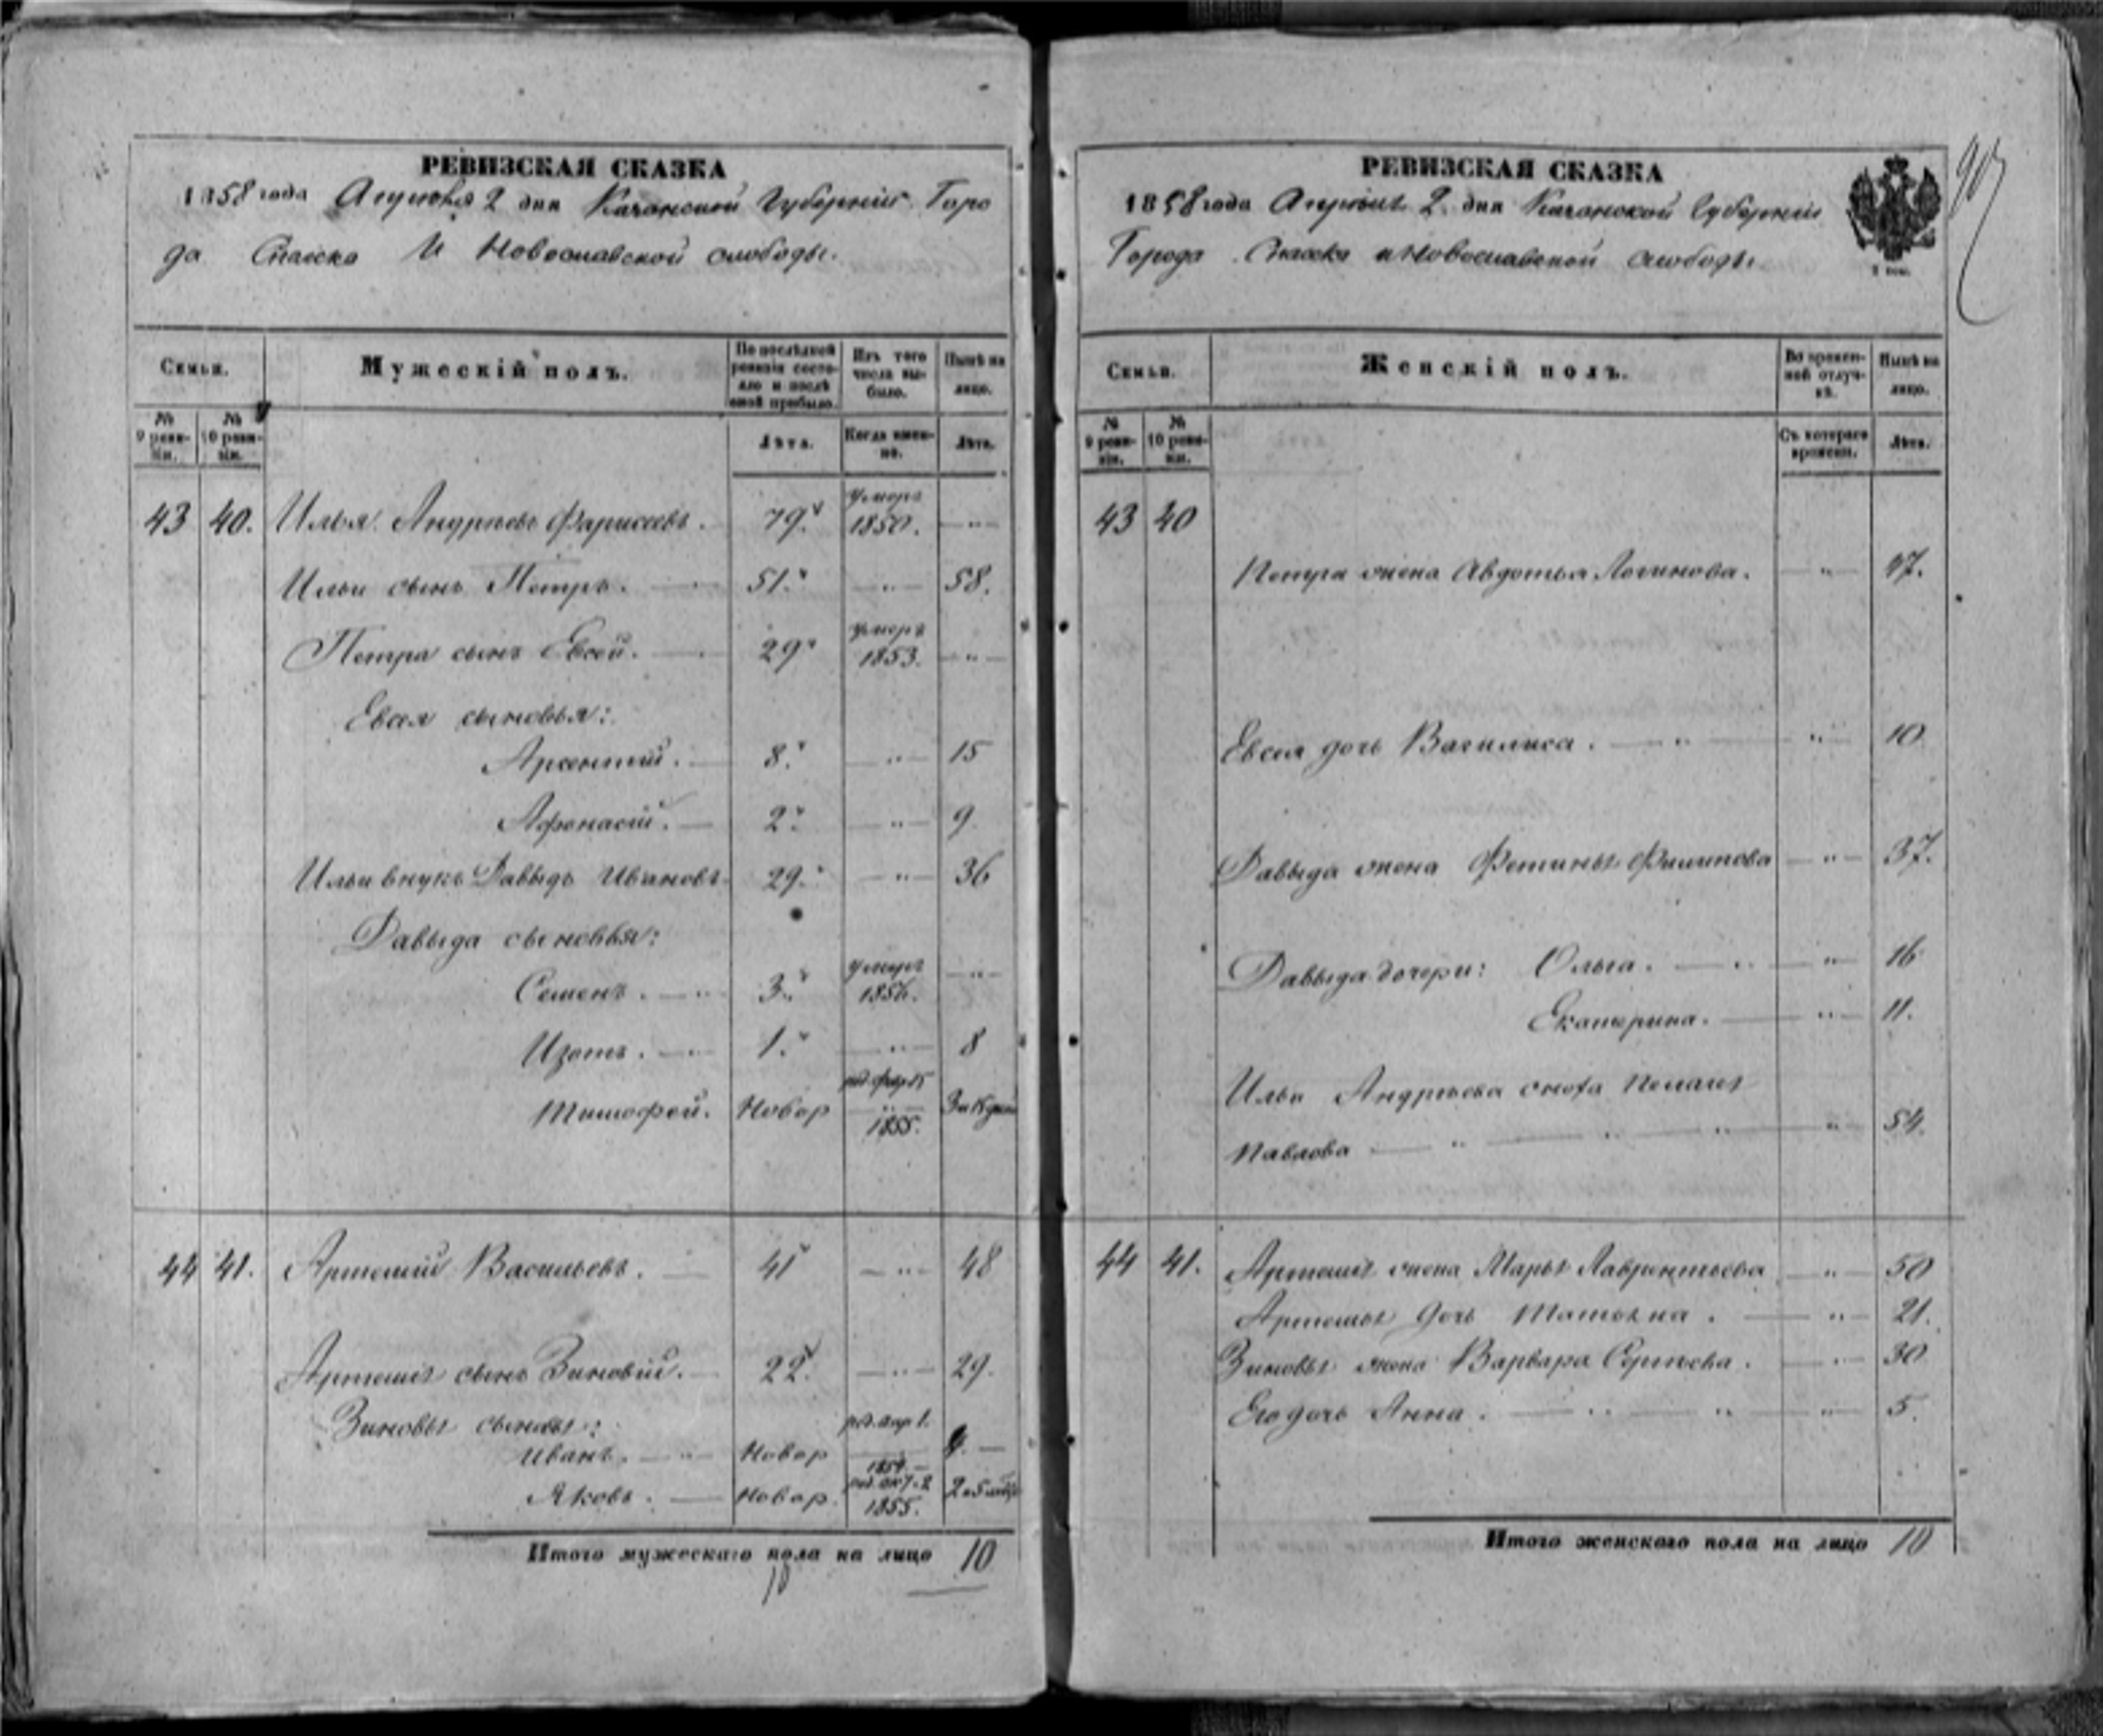 РЕВИЗСКАЯ СКАЗКА
1858 года Апреля 2 дня Казанской Губерніи Горо
да Спасска И Новоспавской слободы.
Семьи.
Мужескій полъ.
По послѣдней ревизіи состояло и послѣ оной прибыло.
Изъ того числа выбыло.
Нынѣ на лицо.
№ 9 ревизіи.
№ 10 ревизіи.
Лѣта.
Когда именно.
Лѣта.
43 40. Илья Андреевъ Фарисеевъ. 79. умеръ 1850. — " —
Ильи сынъ Петръ. 51. — " — 58.
Петра сынъ Евсей. 29. умеръ 1853. — " —
Евсея сыновья:
Арсентий. 8. — " — 15
Афонасій. 2. — " — 9
Ильи внукъ Давыдъ Ивановъ 29. — " — 36
Давыда сыновья:
Семенъ. 3. умеръ 1856. — " —
Изотъ. 1. — " — 8
Тимофей. Новор 1855.
44 41. Артемий Васильевъ. 41 — " — 48
Артемья сынъ Зиновій. 22. — " — 29.
Зиновья сыновья:
Иванъ. Новор род. апр 1. 1854. 4. —
Яковъ. Новор. род. окт. 2 1855.
Итого мужескаго пола на лицо 10
10
907
РЕВИЗСКАЯ СКАЗКА
1858 года Апреля 2 дня Казанской Губерніи
Города Спасска и Новоспавской слободы.
Семьи.
Женскій полъ.
Во временной отлучкѣ.
Нынѣ на лицо.
№ 9 ревизіи.
№ 10 ревизіи.
Съ котораго времени.
Лѣта.
43 40
Петра жена Авдотья Логинова. — " — 47.
Евсея дочь Василиса. — " — 10
Давыда жена Фетинья Филипова — " — 37.
Давыда дочери: Ольга. — " — 16
Екатерина. — " — 11.
Ильи Андреева сноха
Павлова — " — 54.
44 41. Артемья жена Марья Лаврентьева — " — 50
Артемья дочь Татьяна. — " — 21.
Зиновья жена Варвара Сергѣева. — " — 30
Его дочь Анна. — " — 5.
Итого женскаго пола на лицо 10